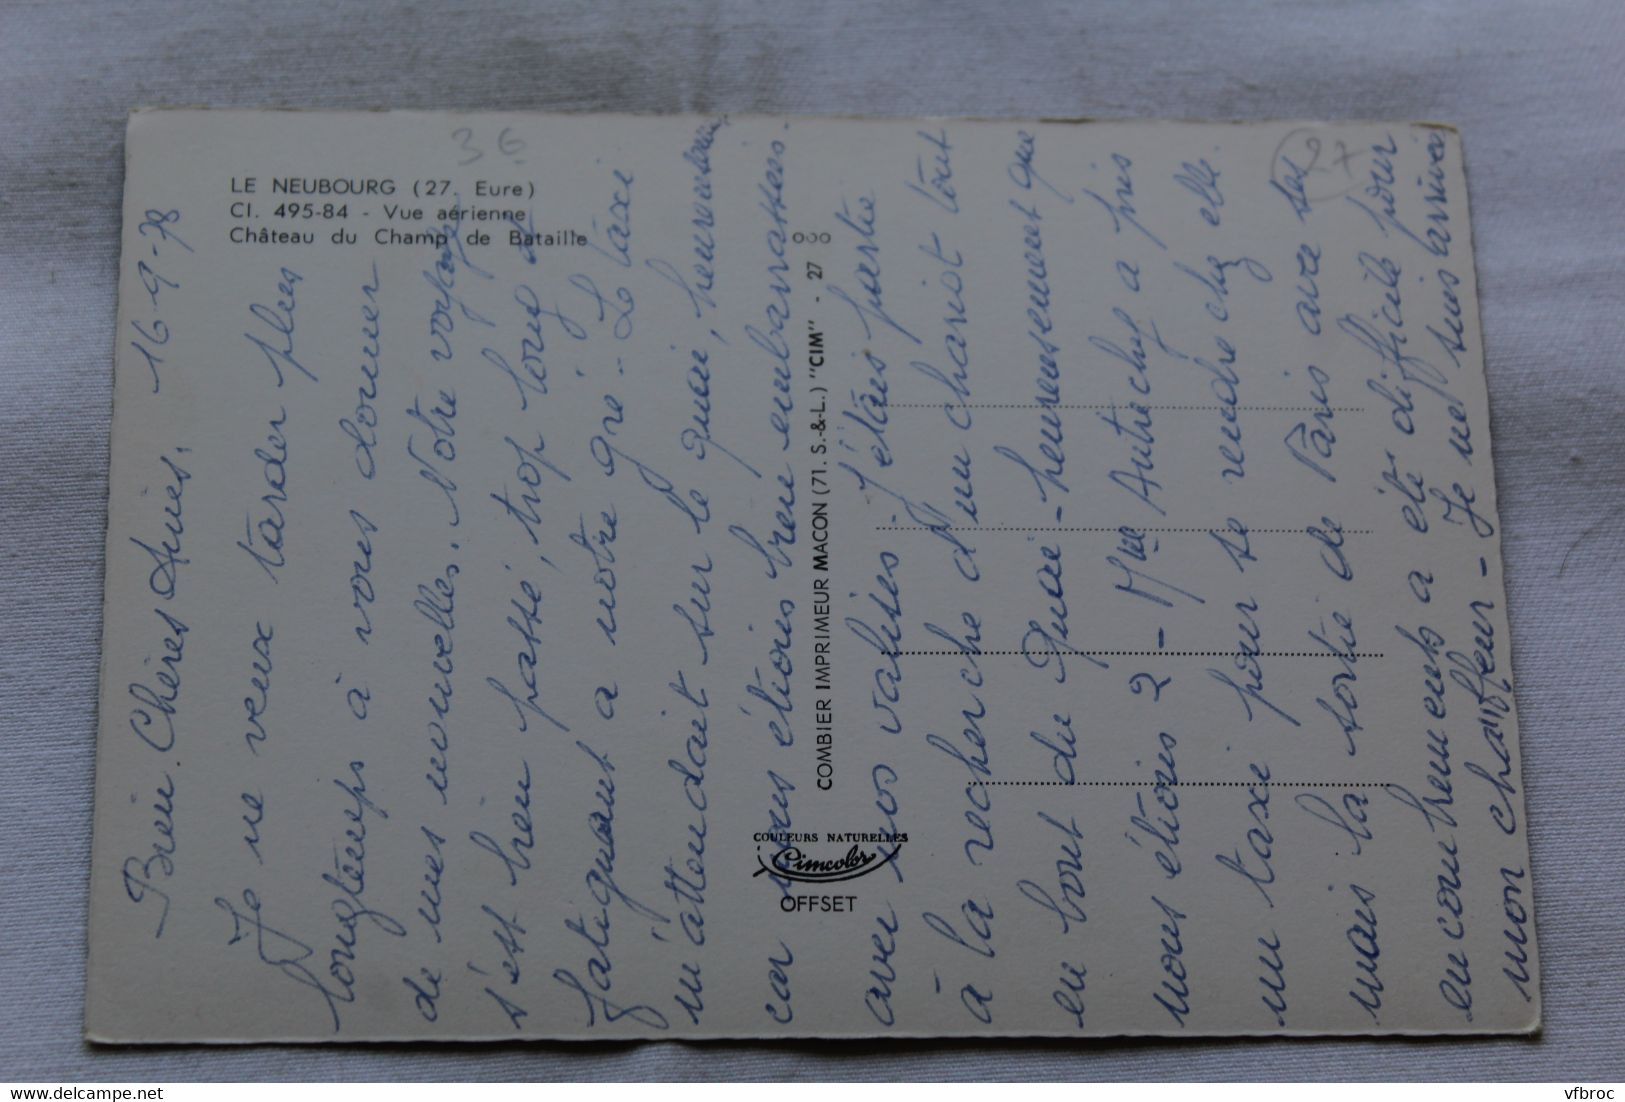 36
27
LE NEUBOURG (27. Eure)
CI. 495-84 - Vue aérienne
Château du Champ de Bataille
ooo
COMBIER IMPRIMEUR MACON (71. S.-&-L.) "CIM" - 27
COULEURS NATURELLES
Cimcolor
OFFSET
Bien Chères Amies, 16-9-78
Je ne veux tarder plus
longtemps à vous donner
de mes nouvelles. Notre voyage
s'est bien passé, trop long et
fatiguant à notre gré - Le taxi
m'attendait sur le quai, heureusement,
car nous étions bien embarrassées
avec nos valises. J'étais partie
à la recherche d'un chariot tout
au bout du Quai - heureusement que
nous étions 2 - Mlle Autechef a pris
un taxi pour se rendre chez elle.
mais la sortie de Paris avec ses
encombrements a été difficile pour
mon chauffeur - Je ne suis arrivée
vfbroc
www.delcampe.net